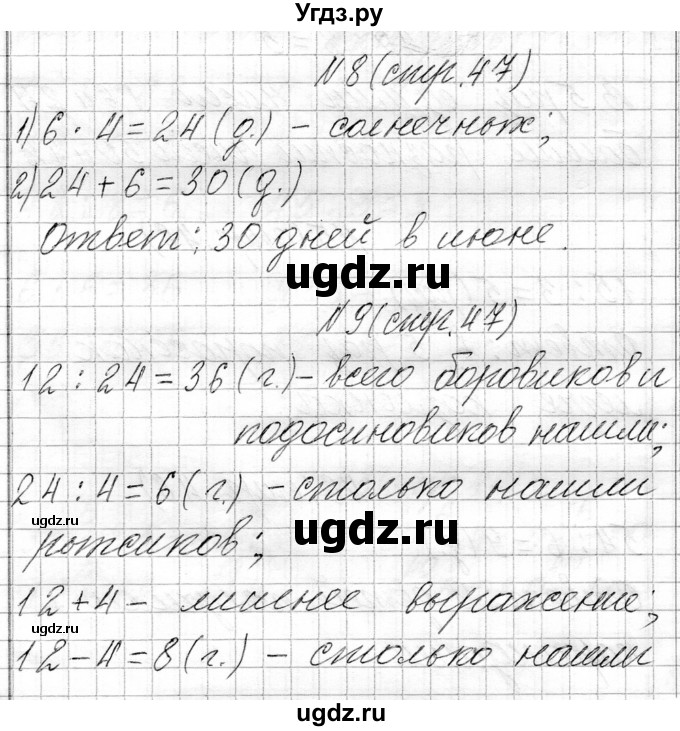 Угдз.ру
№8(стр.47)
1) 6 · 4 = 24 (д.) – солнечных;
2) 24 + 6 = 30 (д.)
Ответ: 30 дней в июне.
ugdz.ru
№9(стр.47)
12 : 24 = 36 (г.) – всего боровиков и
подосиновиков нашли;
24 : 4 = 6 (г.) – столько нашли
ugdz.ru
рыжиков;
ugdz.ru
12 + 4 – лишнее выражение;
ugdz.ru
12 – 4 = 8 (г.) – столько нашли
ugdz.ru